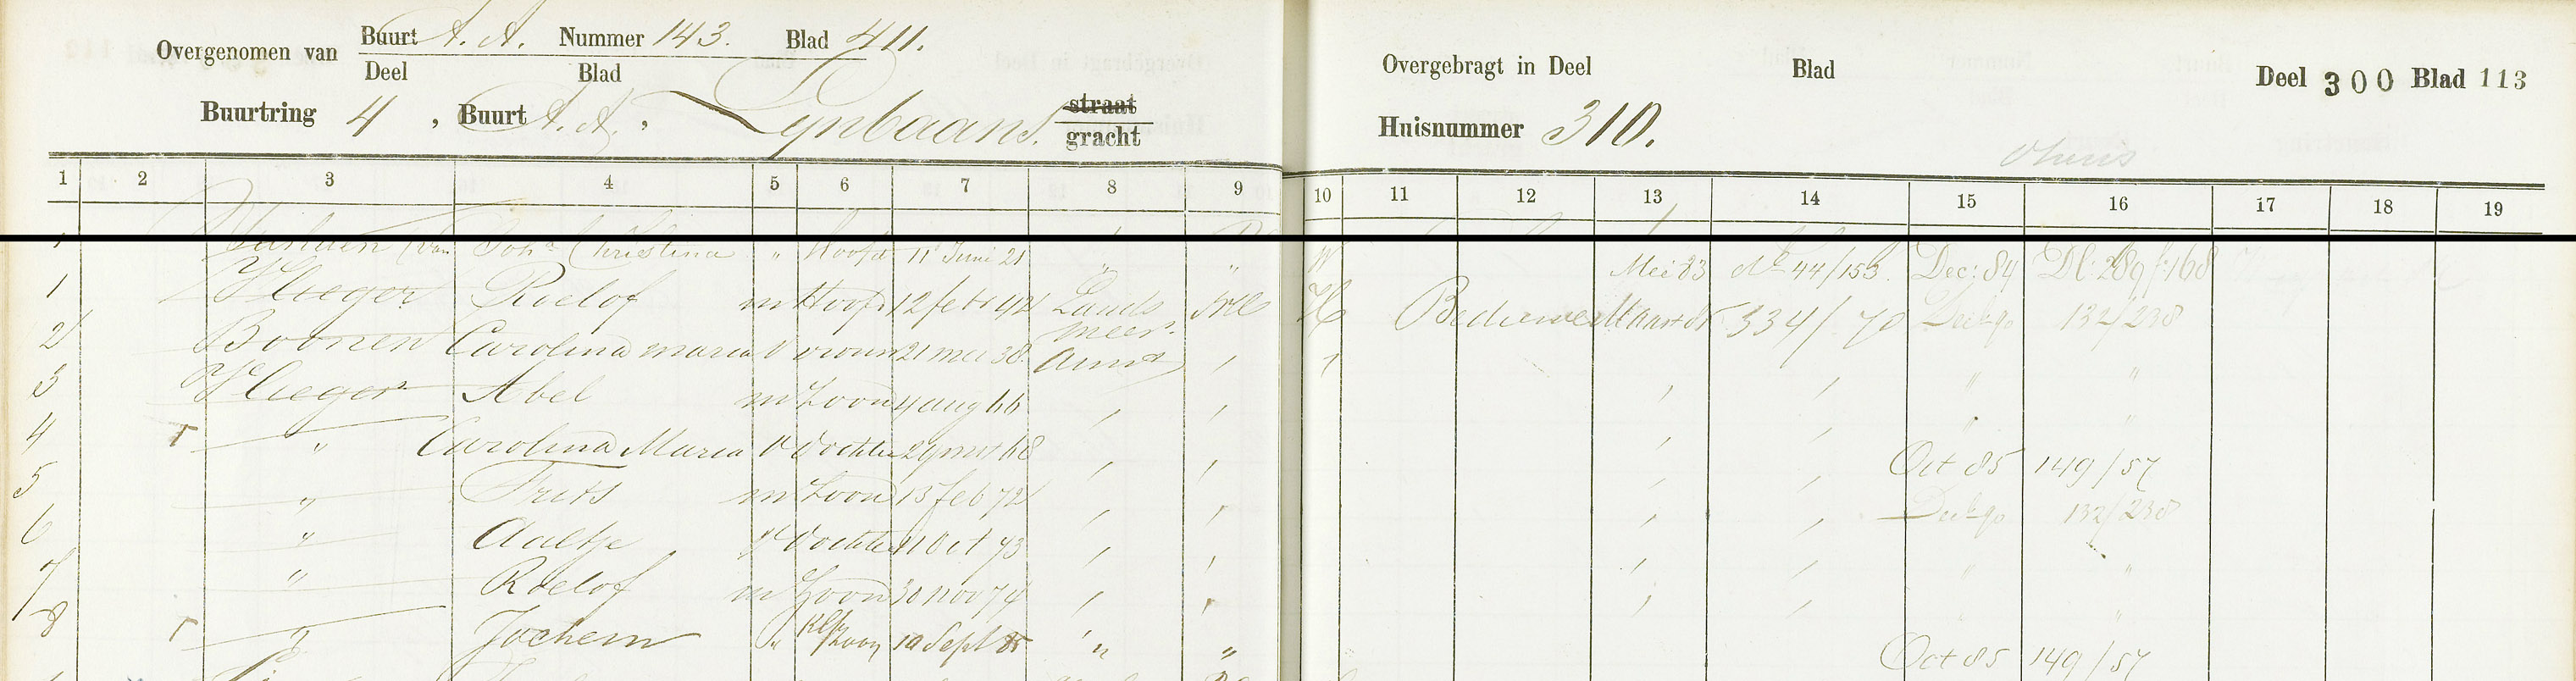 Overgenomen van Buurt A. A. Nummer 143. Blad 411.
Deel Blad
Buurtring 4, Buurt A. A., Lynbaans. straat gracht
Overgebragt in Deel Blad Deel 300 Blad 113
Huisnummer 310.
1 2 3 4 5 6 7 8 9 10 11 12 13 14 15 16 17 18 19
Joha Christina " Hoofd 11 Juni 21 " " Mei 83 No 44/153. Dec: 84 Dl: 289 f: 168
1 Vlieger Roelof m Hoofd 12 feb 42 Lands meer. H Maart 85 334/70 Dec 90 132/238
2 Boonen Carolina maria v vrouw 21 mei 38 Amst " "
3 Vlieger Abel m Zoon 4 aug 66 " "
4 " Carolina Maria v Dochter 29 68 Oct 85 149/57
5 " Frits m Zoon 13 feb 72 Dec 90 132/238
6 " Aaltje v Dochter 11 Oct 73 " "
7 " Roelof m Zoon 30 nov 74 " "
8 " Jochem " Klzoon 19 Sept 85 " " Oct 85 149/57